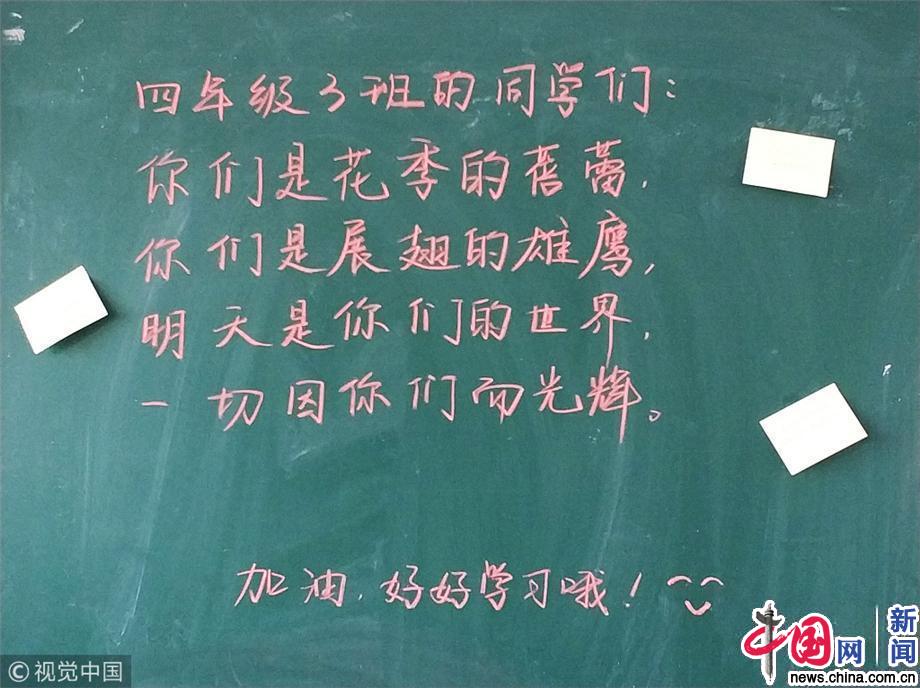 四年级3班的同学们：
你们是花季的蓓蕾，
你们是展翅的雄鹰，
明天是你们的世界，
一切因你们而光辉。
加油，好好学习哦！
© 视觉中国
中国网 新闻
news.china.com.cn